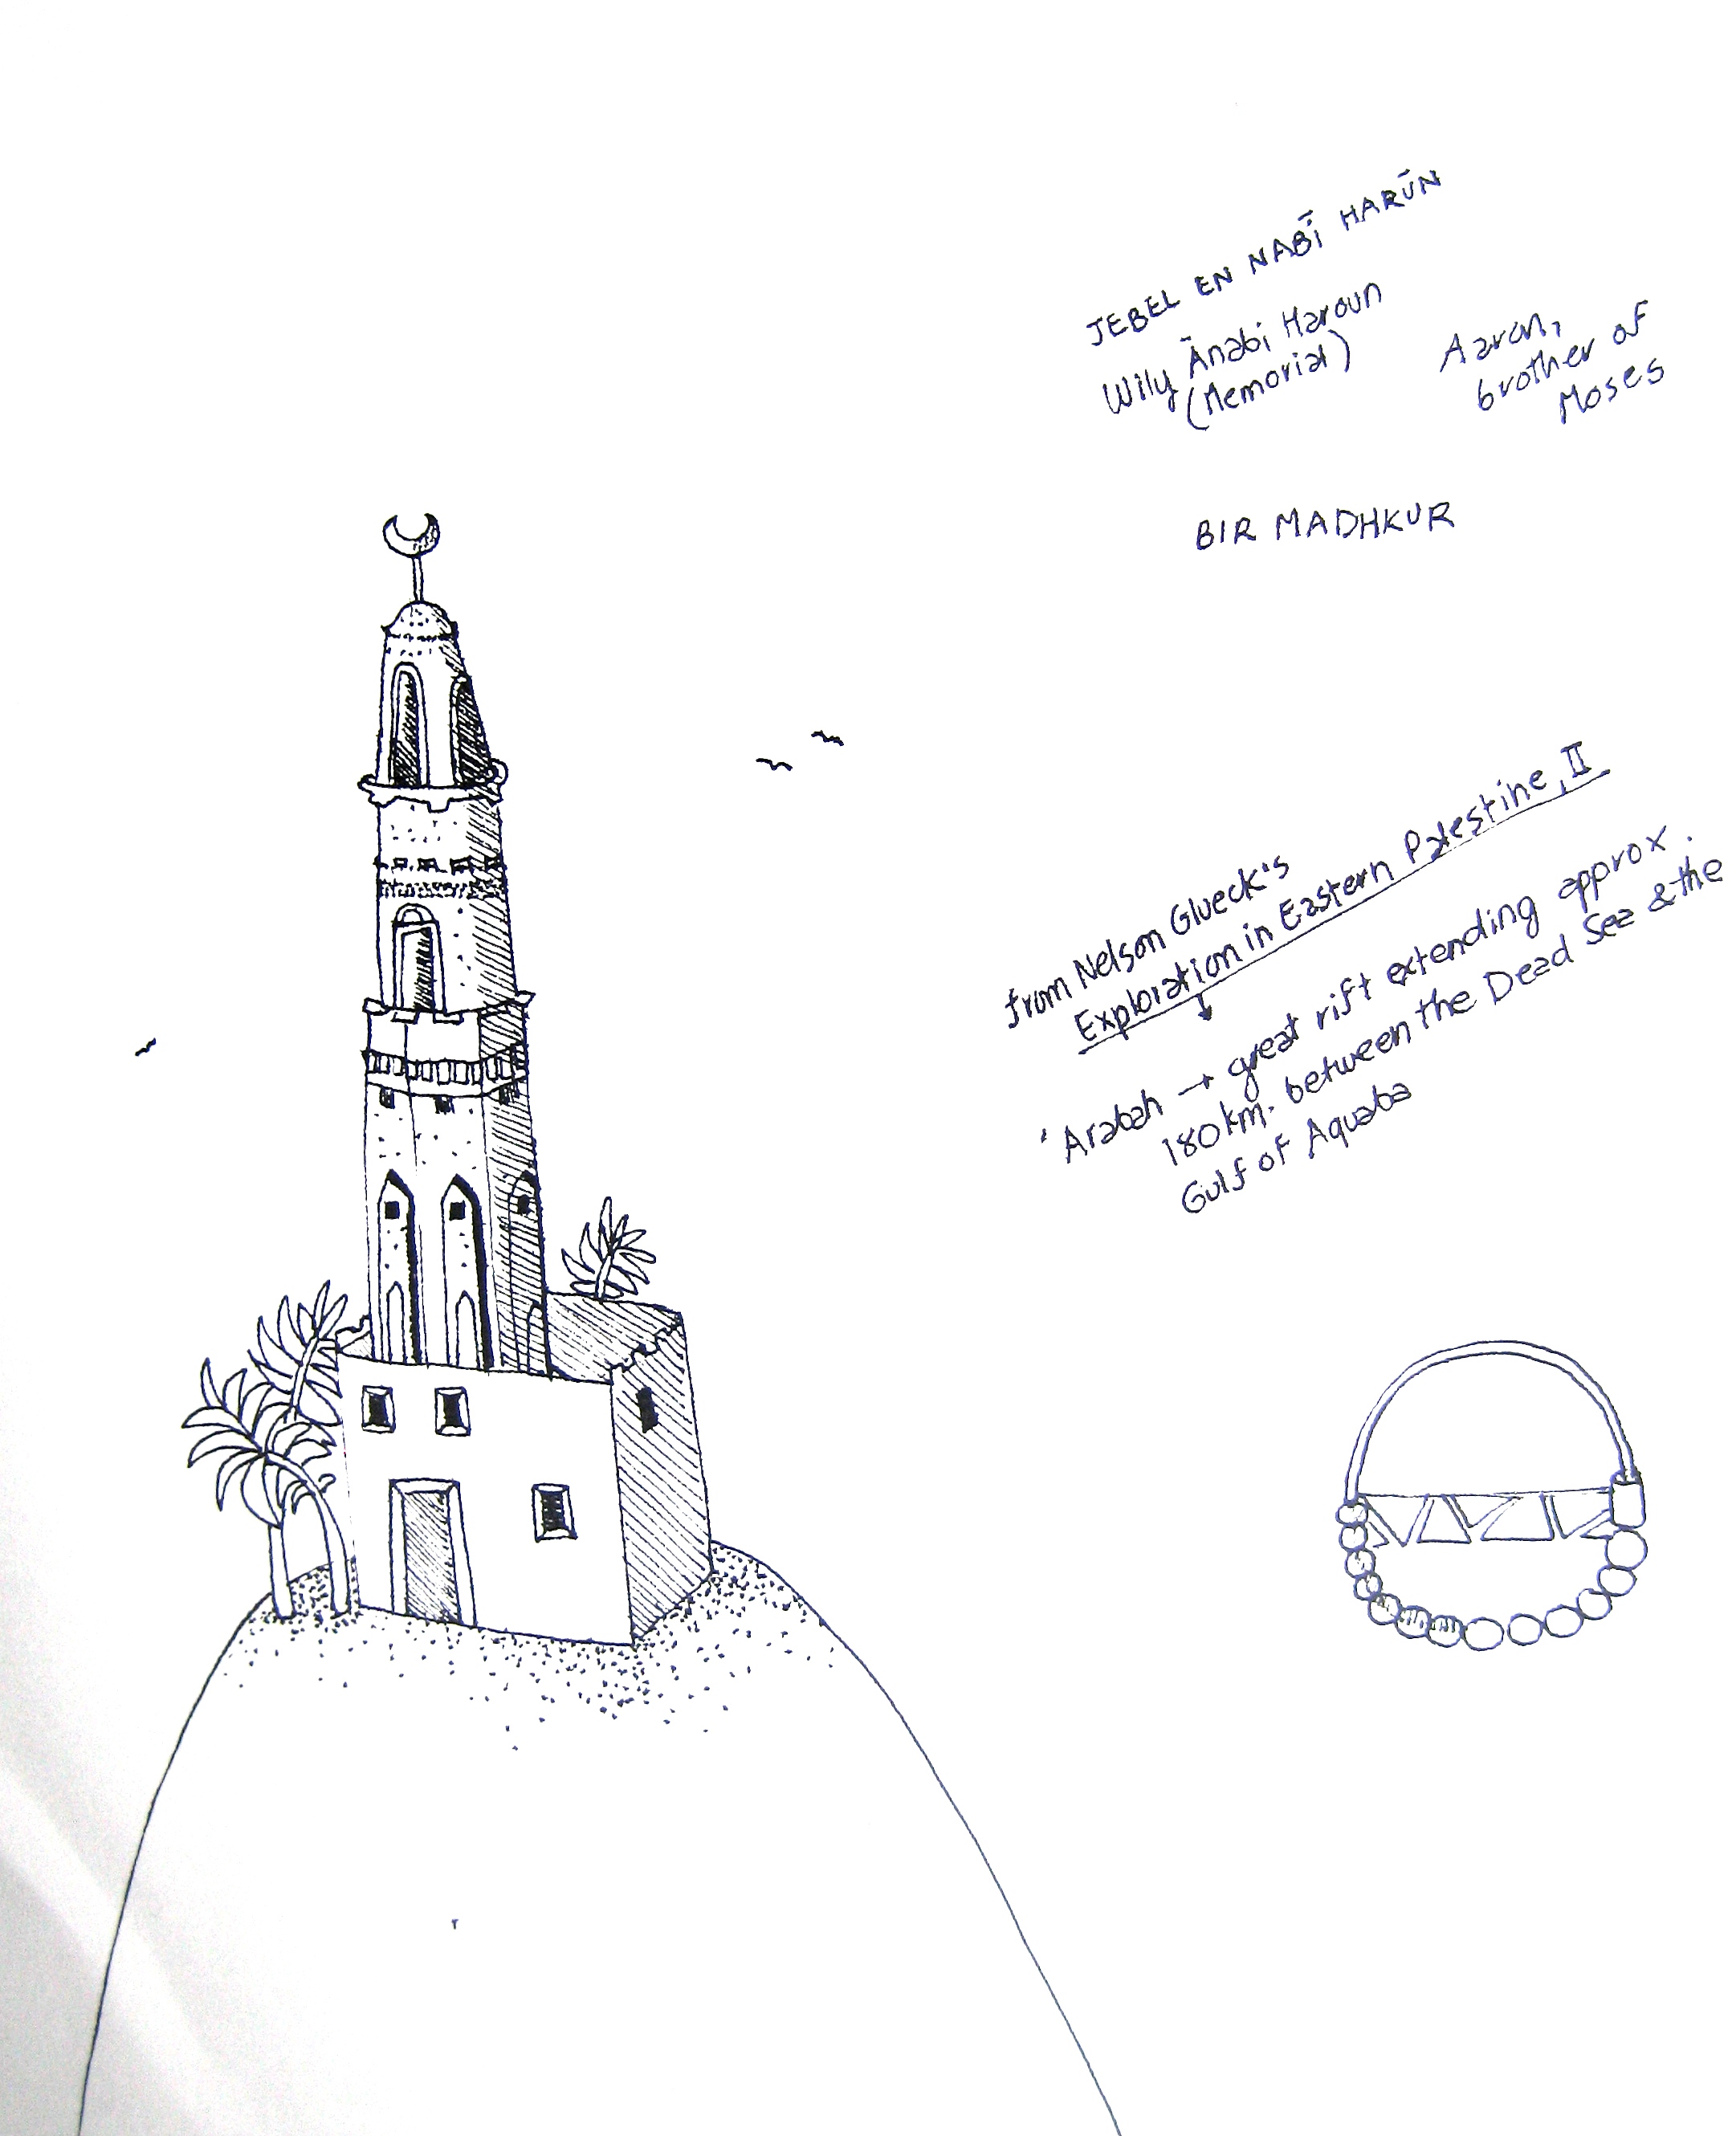 JEBEL EN NABĪ HARŪN
Wily Ānabi Haroun
(Memorial)
Aaron,
brother of
Moses
BIR MADHKUR
from Nelson Glueck's
Exploration in Eastern Palestine, II
'Arabah → great rift extending approx.
180 km. between the Dead Sea & the
Gulf of Aquaba